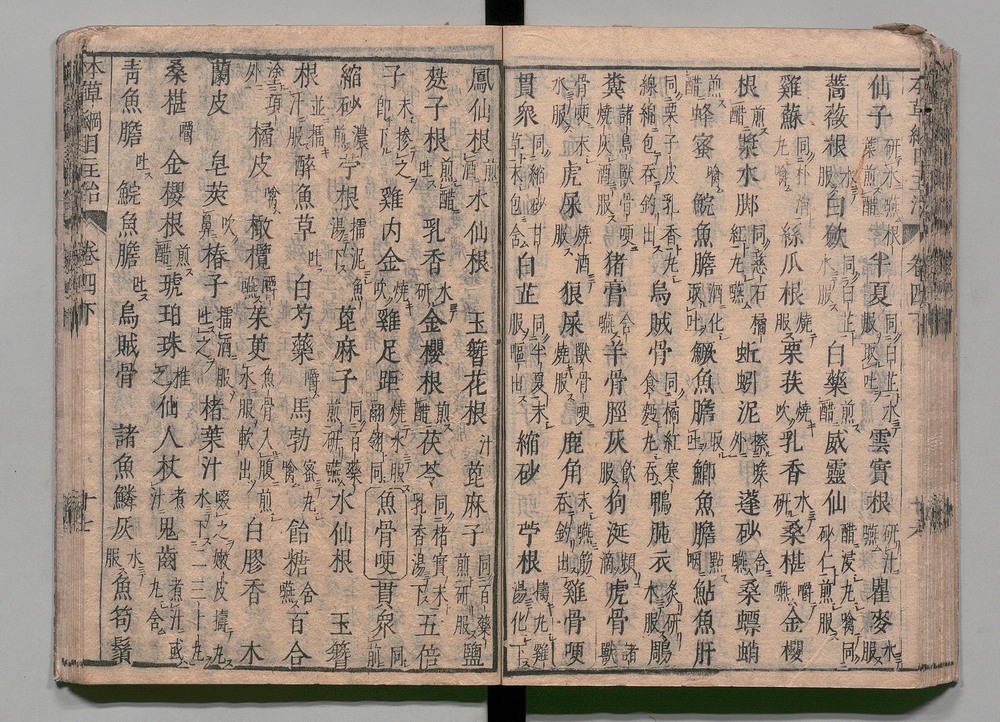 本草綱目主治　卷四下
仙子研水嚥根葉煎醋半夏同白芷水服取吐雲實根研汁嚥瞿麥水服
蔷薇根水服白歛同白芷水服白藥煎醋威靈仙醋浸丸噙同砂仁煎服
雞蘇同朴消丸噙絲瓜根燒服栗荴燒吹乳香水研桑椹嚼嚥金櫻
根煎醋漿水脚同慈石橘紅丸嚥蚯蚓泥擦喉外蓬砂含嚥桑螵蛸
煎醋蜂蜜噙鯇魚膽酒化取吐鱖魚膽取吐鯽魚膽點咽鮎魚肝
同栗子皮乳香丸線綿包吞釣出烏賊骨同橘紅寒食麪丸吞鴨肫衣炙研水服鵰
糞諸鳥獸骨哽燒灰酒服猪膏含嚥羊骨脛灰飲服狗涎頻滴虎骨諸獸
骨哽水服虎屎燒酒服狼屎獸骨哽燒服鹿角末嚥筋吞釣出雞骨哽
貫衆同縮砂甘草末包含白芷同半夏末服嘔出縮砂苧根搗丸雞湯化下
鳳仙根煎酒水仙根玉簪花根汁蓖麻子同百藥煎研服鹽
麩子根煎醋吐乳香水研金櫻根煎醋茯苓同楮實末乳香湯下五倍
子末摻之即下雞内金燒吹雞足距燒水服翮翎同魚骨哽貫衆同前
縮砂濃煎苧根擂泥魚湯下蓖麻子同百藥煎研嚥水仙根玉簪
根並搗汁服醉魚草吐白芍藥嚼馬勃蜜丸噙飴糖含嚥百合
塗項外橘皮噙橄欖嚼嚥茱萸魚骨入腹煎水服軟出白膠香木
蘭皮皂莢吹鼻椿子擂酒服吐之楮葉汁啜之嫩皮擣丸水下二三十丸
桑椹嚼金櫻根煎醋琥珀珠推之仙人杖煮汁鬼齒煮汁或丸含
青魚膽吐鯇魚膽吐烏賊骨諸魚鱗灰水服魚笱鬚
本草綱目主治　卷四下　十七